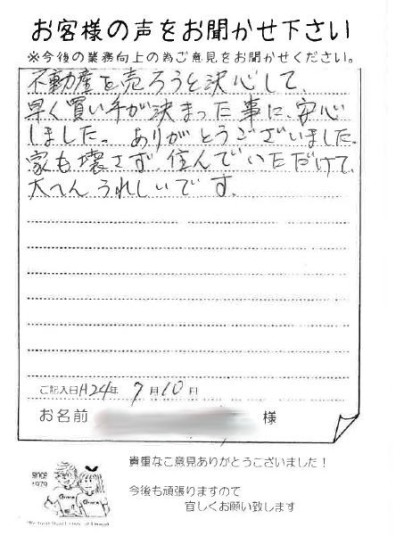 お客様の声をお聞かせ下さい
※今後の業務向上の為ご意見をお聞かせください。
不動産を売ろうと決心して、
早く買い手が決まった事に、安心
しました。ありがとうございました。
家も壊さず、住んでいただけて、
大へんうれしいです。
ご記入日H24年 9月10日
お名前 様
貴重なご意見ありがとうございました！
SINCE
1979
今後も頑張りますので
宜しくお願い致します